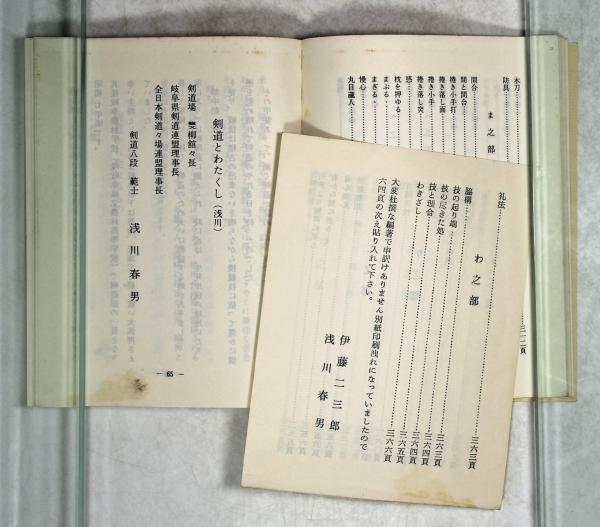 木刀
防具
ま之部
間合
間と間合
捲き小手打
捲き落し面
捲き小手
捲き落し突
惑
枕を押ゆる
まぶる
まぎる
慢心
丸目蔵人
剣道とわたくし（浅川）
剣道場　雙柳館々長
岐阜県剣道連盟理事長
全日本剣道々場連盟理事長
剣道八段　範士　浅川春男
— 65 —
礼法
わ之部
脇構……三六三頁
技の起り端……三六三頁
技の尽きた処……三六四頁
技と理合……三六四頁
わきざし……三六五頁
三六六頁
大変杜撰な編著で申訳けありません別紙印刷洩れになっていましたので
六四頁の次え貼り入れて下さい。
伊藤二三郎
浅川春男